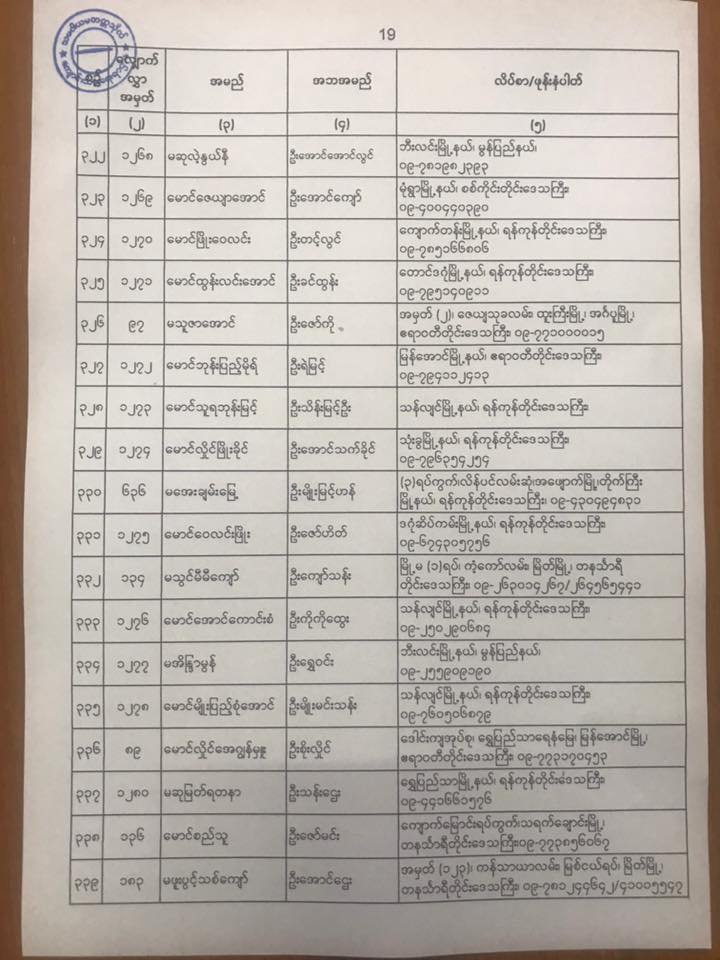 19
စဉ် လျှောက်လွှာအမှတ် အမည် အဘအမည် လိပ်စာ/ဖုန်းနံပါတ်
(၁) (၂) (၃) (၄) (၅)
၃၂၂ ၁၂၆၈ မဆုလဲ့နွယ်နီ ဦးအောင်အောင်လွင် ဘီးလင်းမြို့နယ်၊ မွန်ပြည်နယ်၊
၀၉-၇၈၁၉၈၂၃၉၃
၃၂၃ ၁၂၆၉ မောင်ဇေယျာအောင် ဦးအောင်ကျော် မုံရွာမြို့နယ်၊ စစ်ကိုင်းတိုင်းဒေသကြီး၊
၀၉-၄၀၀၄၄၀၃၉၀
၃၂၄ ၁၂၇၀ မောင်ဖြိုးဝေလင်း ဦးတင့်လွင် ကျောက်တန်းမြို့နယ်၊ ရန်ကုန်တိုင်းဒေသကြီး၊
၀၉-၇၈၅၁၆၆၈၀၆
၃၂၅ ၁၂၇၁ မောင်ထွန်းလင်းအောင် ဦးခင်ထွန်း တောင်ဒဂုံမြို့နယ်၊ ရန်ကုန်တိုင်းဒေသကြီး၊
၀၉-၇၉၅၁၄၀၉၁၁
၃၂၆ ၉၇ မသူဇာအောင် ဦးဇော်ကို အမှတ် (၂)၊ ဇေယျသုခလမ်း၊ ထူးကြီးမြို့၊ အင်္ဂပူမြို့၊
ဧရာဝတီတိုင်းဒေသကြီး၊ ၀၉-၇၇၁၀၀၀၀၁၅
၃၂၇ ၁၂၇၂ မောင်ဘုန်းပြည့်မိုရ် ဦးရဲမြင့် မြန်အောင်မြို့နယ်၊ ဧရာဝတီတိုင်းဒေသကြီး၊
၀၉-၇၉၄၁၁၂၄၁၃
၃၂၈ ၁၂၇၃ မောင်သူရဘုန်းမြင့် ဦးသိန်းမြင့်ဦး သန်လျင်မြို့နယ်၊ ရန်ကုန်တိုင်းဒေသကြီး၊
၃၂၉ ၁၂၇၄ မောင်လှိုင်ဖြိုးခိုင် ဦးအောင်သက်ခိုင် သုံးခွမြို့နယ်၊ ရန်ကုန်တိုင်းဒေသကြီး၊
၀၉-၇၉၆၃၅၄၂၅၄
၃၃၀ ၆၃၆ မအေးချမ်းမြေ့ ဦးမျိုးမြင့်ဟန် (၃)ရပ်ကွက်၊လိန်ပင်လမ်းဆုံ၊အဖျောက်မြို့၊တိုက်ကြီး
မြို့နယ်၊ ရန်ကုန်တိုင်းဒေသကြီး၊ ၀၉-၄၃၀၄၉၄၈၃၁
၃၃၁ ၁၂၇၅ မောင်ဝေလင်းဖြိုး ဦးဇော်ဟိတ် ဒဂုံဆိပ်ကမ်းမြို့နယ်၊ ရန်ကုန်တိုင်းဒေသကြီး၊
၀၉-၆၇၄၃၀၅၇၅၆
၃၃၂ ၁၃၄ မသွင်မီမီကျော် ဦးကျော်သန်း မြို့မ (၁)ရပ်၊ ကံ့ကော်လမ်း၊ မြိတ်မြို့၊ တနင်္သာရီ
တိုင်းဒေသကြီး၊ ၀၉-၂၆၃၀၁၄၂၆၇/၂၆၄၅၆၅၄၄၁
၃၃၃ ၁၂၇၆ မောင်အောင်ကောင်းစံ ဦးကိုကိုထွေး သန်လျင်မြို့နယ်၊ ရန်ကုန်တိုင်းဒေသကြီး၊
၀၉-၂၅၀၂၉၀၆၈၄
၃၃၄ ၁၂၇၇ မအိန္ဒြာမွန် ဦးရွှေဝင်း ဘီးလင်းမြို့နယ်၊ မွန်ပြည်နယ်၊
၀၉-၂၅၅၉၀၉၁၉၀
၃၃၅ ၁၂၇၈ မောင်မျိုးပြည့်စုံအောင် ဦးမျိုးမင်းသန်း သန်လျင်မြို့နယ်၊ ရန်ကုန်တိုင်းဒေသကြီး၊
၀၉-၇၆၀၅၀၆၈၇၉
၃၃၆ ၈၉ မောင်လှိုင်အေဂျွန်မှူး ဦးစိုးလှိုင် ဒေါင်းကျအုပ်စု၊ ရွှေပြည်သာရေနံမြေ၊ မြန်အောင်မြို့၊
ဧရာဝတီတိုင်းဒေသကြီး၊ ၀၉-၇၇၃၁၇၀၄၅၃
၃၃၇ ၁၂၈၀ မဆုမြတ်ရတနာ ဦးသန်းဌေး ရွှေပြည်သာမြို့နယ်၊ ရန်ကုန်တိုင်းဒေသကြီး၊
၀၉-၄၄၁၆၆၁၅၇၆
၃၃၈ ၁၃၆ မောင်စည်သူ ဦးဇော်မင်း ကျောက်မြောင်းရပ်ကွက်၊သရက်ချောင်းမြို့၊
တနင်္သာရီတိုင်းဒေသကြီး၊၀၉-၇၇၃၈၅၆၀၆၇
၃၃၉ ၁၈၃ မဖူးပွင့်သစ်ကျော် ဦးအောင်ဌေး အမှတ် (၁၂၃)၊ ကန်သာယာလမ်း၊ မြစ်ငယ်ရပ်၊ မြိတ်မြို့၊
တနင်္သာရီတိုင်းဒေသကြီး၊ ၀၉-၇၈၁၂၄၄၆၄၂/၄၁၀၀၅၅၄၇